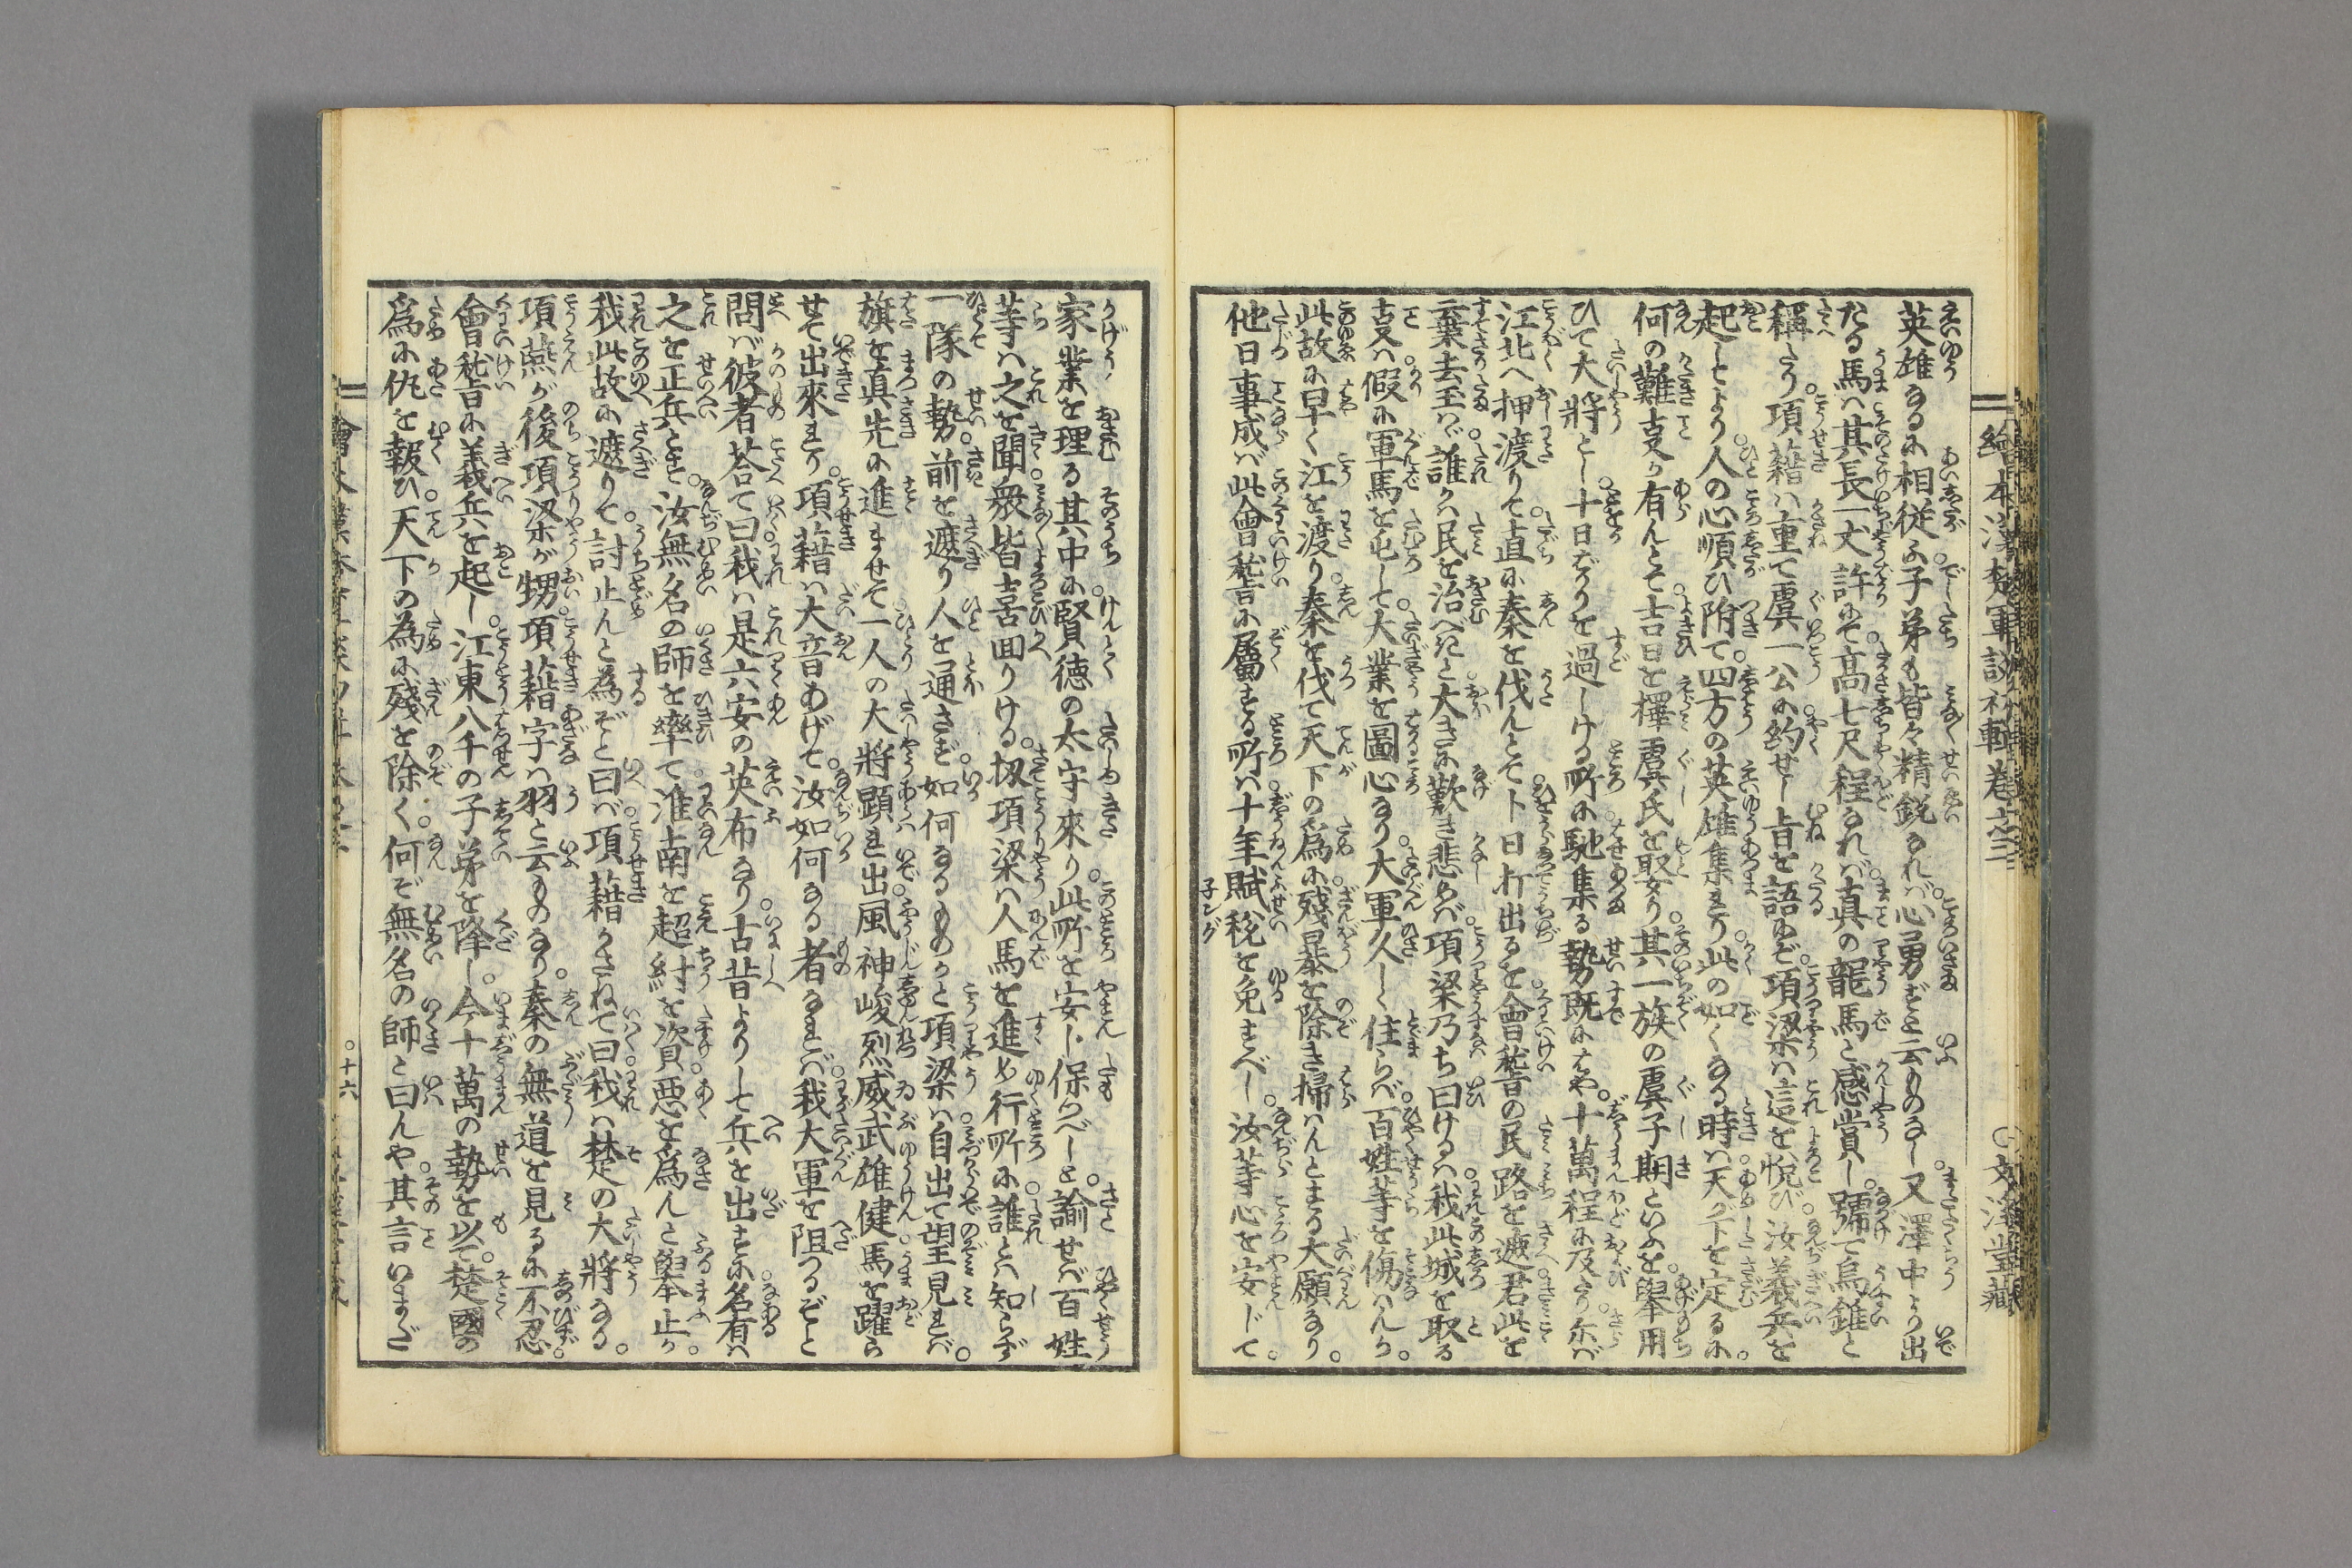 繪本漢楚軍談初輯卷之三
英雄なるに相従ふ子弟も皆々精鋭なれば。心勇ずと云ものなし。又澤中より出
たる馬ハ其長一丈許にて。高七尺程なれバ。真の龍馬と感賞し。號て烏錐と
稱へたり。項籍ハ重て虞一公に約せし旨を語ば。項梁ハ這を悦び。汝義兵を
起しより。人の心順ひ附て。四方の英雄集まり。此の如くなる時ハ。天が下を定るに。
何の難支か有んとて。吉日を擇虞氏を娶り。其一族の虞子期といふを。舉用
ひて大將とし。十日ばかりを過しける所に。馳集る勢既にはや。十萬程に及たり。尓バ
江北へ押渡りて。直に秦を伐んとて。卜日打出るを。會稽の民路を遮。君此を
棄去玉ハヾ。誰かハ民を治べきと。大きに歎き悲めバ。項梁乃ち曰けるハ。我此城を取る
支ハ。假に軍馬を屯して。大業を圖心なり。大軍久しく住らバ。百姓等を傷ハんか。
此故に早く江を渡り。秦を伐て天下の為に。殘暴を除き掃ハんとする大願なり。
他日事成バ。此會稽に屬する所ハ。十年賦税を免すべし。汝等心を安じて。
子ング
家業を理る。其中に賢徳の太守來り。此所を安ト保つべしと。諭せバ百姓
等ハ之を聞。衆皆喜囬りける。扨項梁ハ人馬を進め行所に。誰とハ知らず
一隊の勢。前を遮り人を通さず。如何なるものかと項梁ハ。自出て望見れバ。
旗を真先に進ませて。一人の大將顕れ出。風神峻烈威武雄健。馬を躍ら
せて出來れり。項籍ハ大音あげて。汝如何なる者なれバ。我大軍を阻つるぞと
問バ。彼者荅て曰。我ハ是六安の英布なり。古昔よりして兵を出すに。名有ハ
之を正兵とす。汝無名の師を率て。淮南を超。紂を資。悪を為んと舉止か。
我此故に遮りて。討止んと為ぞと曰バ。項籍かさねて曰。我ハ楚の大將なる。
項燕が後。項梁が甥。項藉字ハ羽と云ものなり。秦の無道を見るに不忍。
會稽に義兵を起し。江東八千の子弟を降し。今十萬の勢を以て。楚國の
為に仇を報ひ。天下の為に殘を除く。何ぞ無名の師と曰んや。其言いまだ
十六